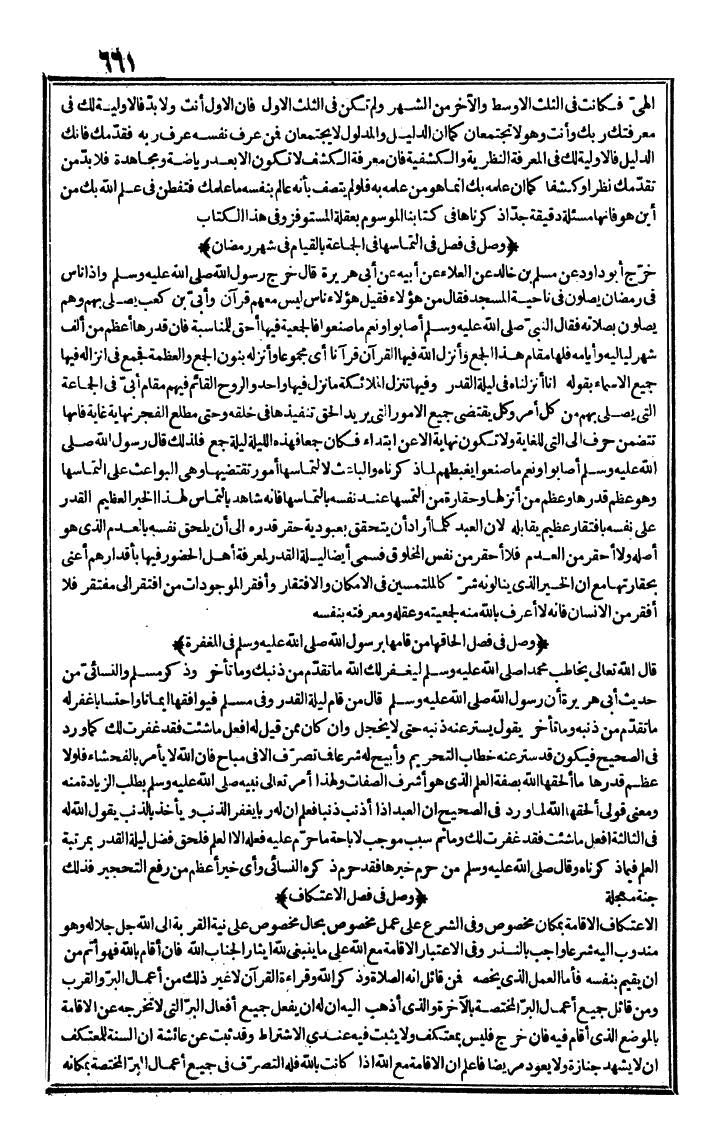 ٦٦١
الهىّ فكانت فى الثلث الاوسط والآخر من الشهر ولم تكن فى الثلث الاول فان الاول أنت ولا بدّ فالاولية لك فى
معرفتك ربك وأنت وهو لا تجتمعان كما ان الدليل والمدلول لا يجتمعان فن عرف نفسه عرف ربه فقدّمك فانك
الدليل فالاولية لك فى المعرفة النظرية والكشفية فان معرفة الكشف لا تكون الا بعد رياضة ومجاهدة فلا بدّ من
تقدّمك نظرا وكشفا كما ان علمه بك انما هو من علمه به فلو لم يتصف بأنه عالم بنفسه ما علمك فتفطن فى علم الله بك من
أين هو فانها مسئلة دقيقة جدّا ذكرناها فى كتابنا الموسوم بعقلة المستوفز وفى هذا الكتاب
﴿وصل فى فصل فى التماسها فى الجماعة بالقيام فى شهر رمضان﴾
خرّج أبو داود عن مسلم بن خالد عن العلاء عن أبيه عن أبى هريرة قال خرج رسول الله صلى الله عليه وسلم واذا ناس
فى رمضان يصلون فى ناحية المسجد فقال من هؤلاء فقيل هؤلاء ناس ليس معهم قرآن وأبىّ بن كعب يصلى بهم وهم
يصلون بصلاته فقال النبىّ صلى الله عليه وسلم أصابوا ونعم ما صنعوا فالجمعية فيها أحق للمناسبة فان قدرها أعظم من ألف
شهر لياليه وأيامه فلها مقام هذا الجمع وأنزل الله فيها القرآن قرآنا أى مجموعا وأنزله بنون الجمع والعظمة فجمع فى انزاله فيها
جميع الاسماء بقوله انا أنزلناه فى ليلة القدر وفيها تنزل الملائكة ما نزل فيها واحد والروح القائم فيهم مقام أبىّ فى الجماعة
التى يصلى بهم من كل أمر وكل يقتضى جميع الامور التى يريد الحق تنفيذها فى خلقه وحتى مطلع الفجر نهاية غاية فانها
تتضمن حرف الى التى للغاية ولا تكون نهاية الا عن ابتداء فكان جمعا فهذه الليلة ليلة جمع فلذلك قال رسول الله صلى
الله عليه وسلم أصابوا ونعم ما صنعوا يغبطهم لما ذكرناه والباعث لالتماسها أمور تقتضيها وهى البواعث على التماسها
وهو عظم قدرها وعظم من أنزلها وحقارة من التمسها عند نفسه بالتماسها فانه شاهد بالتماس لهذا الخير العظيم القدر
على نفسه بافتقار عظيم يقابله لان العبد كلما أراد أن يتحقق بعبودية حقر قدره الى أن يلحق نفسه بالعدم الذى هو
أصله ولا أحقر من العدم فلا أحقر من نفس المخلوق فسمى أيضا ليلة القدر لمعرفة أهل الحضور فيها بأقدارهم أعنى
بحقارتها مع ان الخير الذى ينالونه شرّ كالملتمسين فى الامكان والافتقار وأفقر الموجودات من افتقر الى مفتقر فلا
أفقر من الانسان فانه لا أعرف بالله منه لجمعيته وعقله ومعرفته بنفسه
﴿وصل فى فصل الحاقها من قامها برسول الله صلى الله عليه وسلم فى المغفرة﴾
قال الله تعالى يخاطب محمدا صلى الله عليه وسلم ليغفر لك الله ما تقدّم من ذنبك وما تأخر وذكر مسلم والنسائىّ من
حديث أبى هريرة أن رسول الله صلى الله عليه وسلم قال من قام ليلة القدر وفى مسلم فيوافقها ايمانا واحتسابا غفر له
ما تقدّم من ذنبه وما تأخر يقول يستر عنه ذنبه حتى لا يخجل وان كان ممن قيل له افعل ما شئت فقد غفرت لك كما ورد
فى الصحيح فيكون قد ستر عنه خطاب التحريم وأبيح له شرعا فما تصرّف الا فى مباح فان الله لا يأمر بالفحشاء فلولا
عظم قدرها ما ألحقها الله بصفة العلم الذى هو أشرف الصفات ولهذا أمر تعالى نبيه صلى الله عليه وسلم بطلب الزيادة منه
ومعنى قولى ألحقها الله لما ورد فى الصحيح ان العبد اذا أذنب ذنبا فعلم ان له ربا يغفر الذنب ويأخذ بالذنب يقول الله له
فى الثالثة افعل ما شئت فقد غفرت لك وما ثم سبب موجب لاباحة ما حرّم عليه فعله الا العلم فلحق فضل ليلة القدر بمرتبة
العلم فيما ذكرناه وقال صلى الله عليه وسلم من حرم خيرها فقد حرم ذكره النسائى وأى خير أعظم من رفع التحجير فذلك
جنة معجلة ﴿وصل فى فصل الاعتكاف﴾
الاعتكاف الاقامة بمكان مخصوص وفى الشرع على عمل مخصوص بحال مخصوص على نية القربة الى الله جل جلاله وهو
مندوب اليه شرعا واجب بالنذر وفى الاعتبار الاقامة مع الله على ما ينبغى لله ايثار الجناب الله فان أقام بالله فهو أتم من
ان يقيم بنفسه فأما العمل الذى يخصه فمن قائل انه الصلاة وذكر الله وقراءة القرآن لا غير ذلك من أعمال البرّ والقرب
ومن قائل جميع أعمال البرّ المختصة بالآخرة والذى أذهب اليه ان له ان يفعل جميع أفعال البرّ التى لا تخرجه عن الاقامة
بالموضع الذى أقام فيه فان خرج فليس بمعتكف ولا يثبت فيه عندى الاشتراط وقد ثبت عن عائشة ان السنة للمعتكف
ان لا يشهد جنازة ولا يعود مريضا فاعلم ان الاقامة مع الله اذا كانت بالله فله التصرّف فى جميع أعمال البرّ المختصة بمكانه